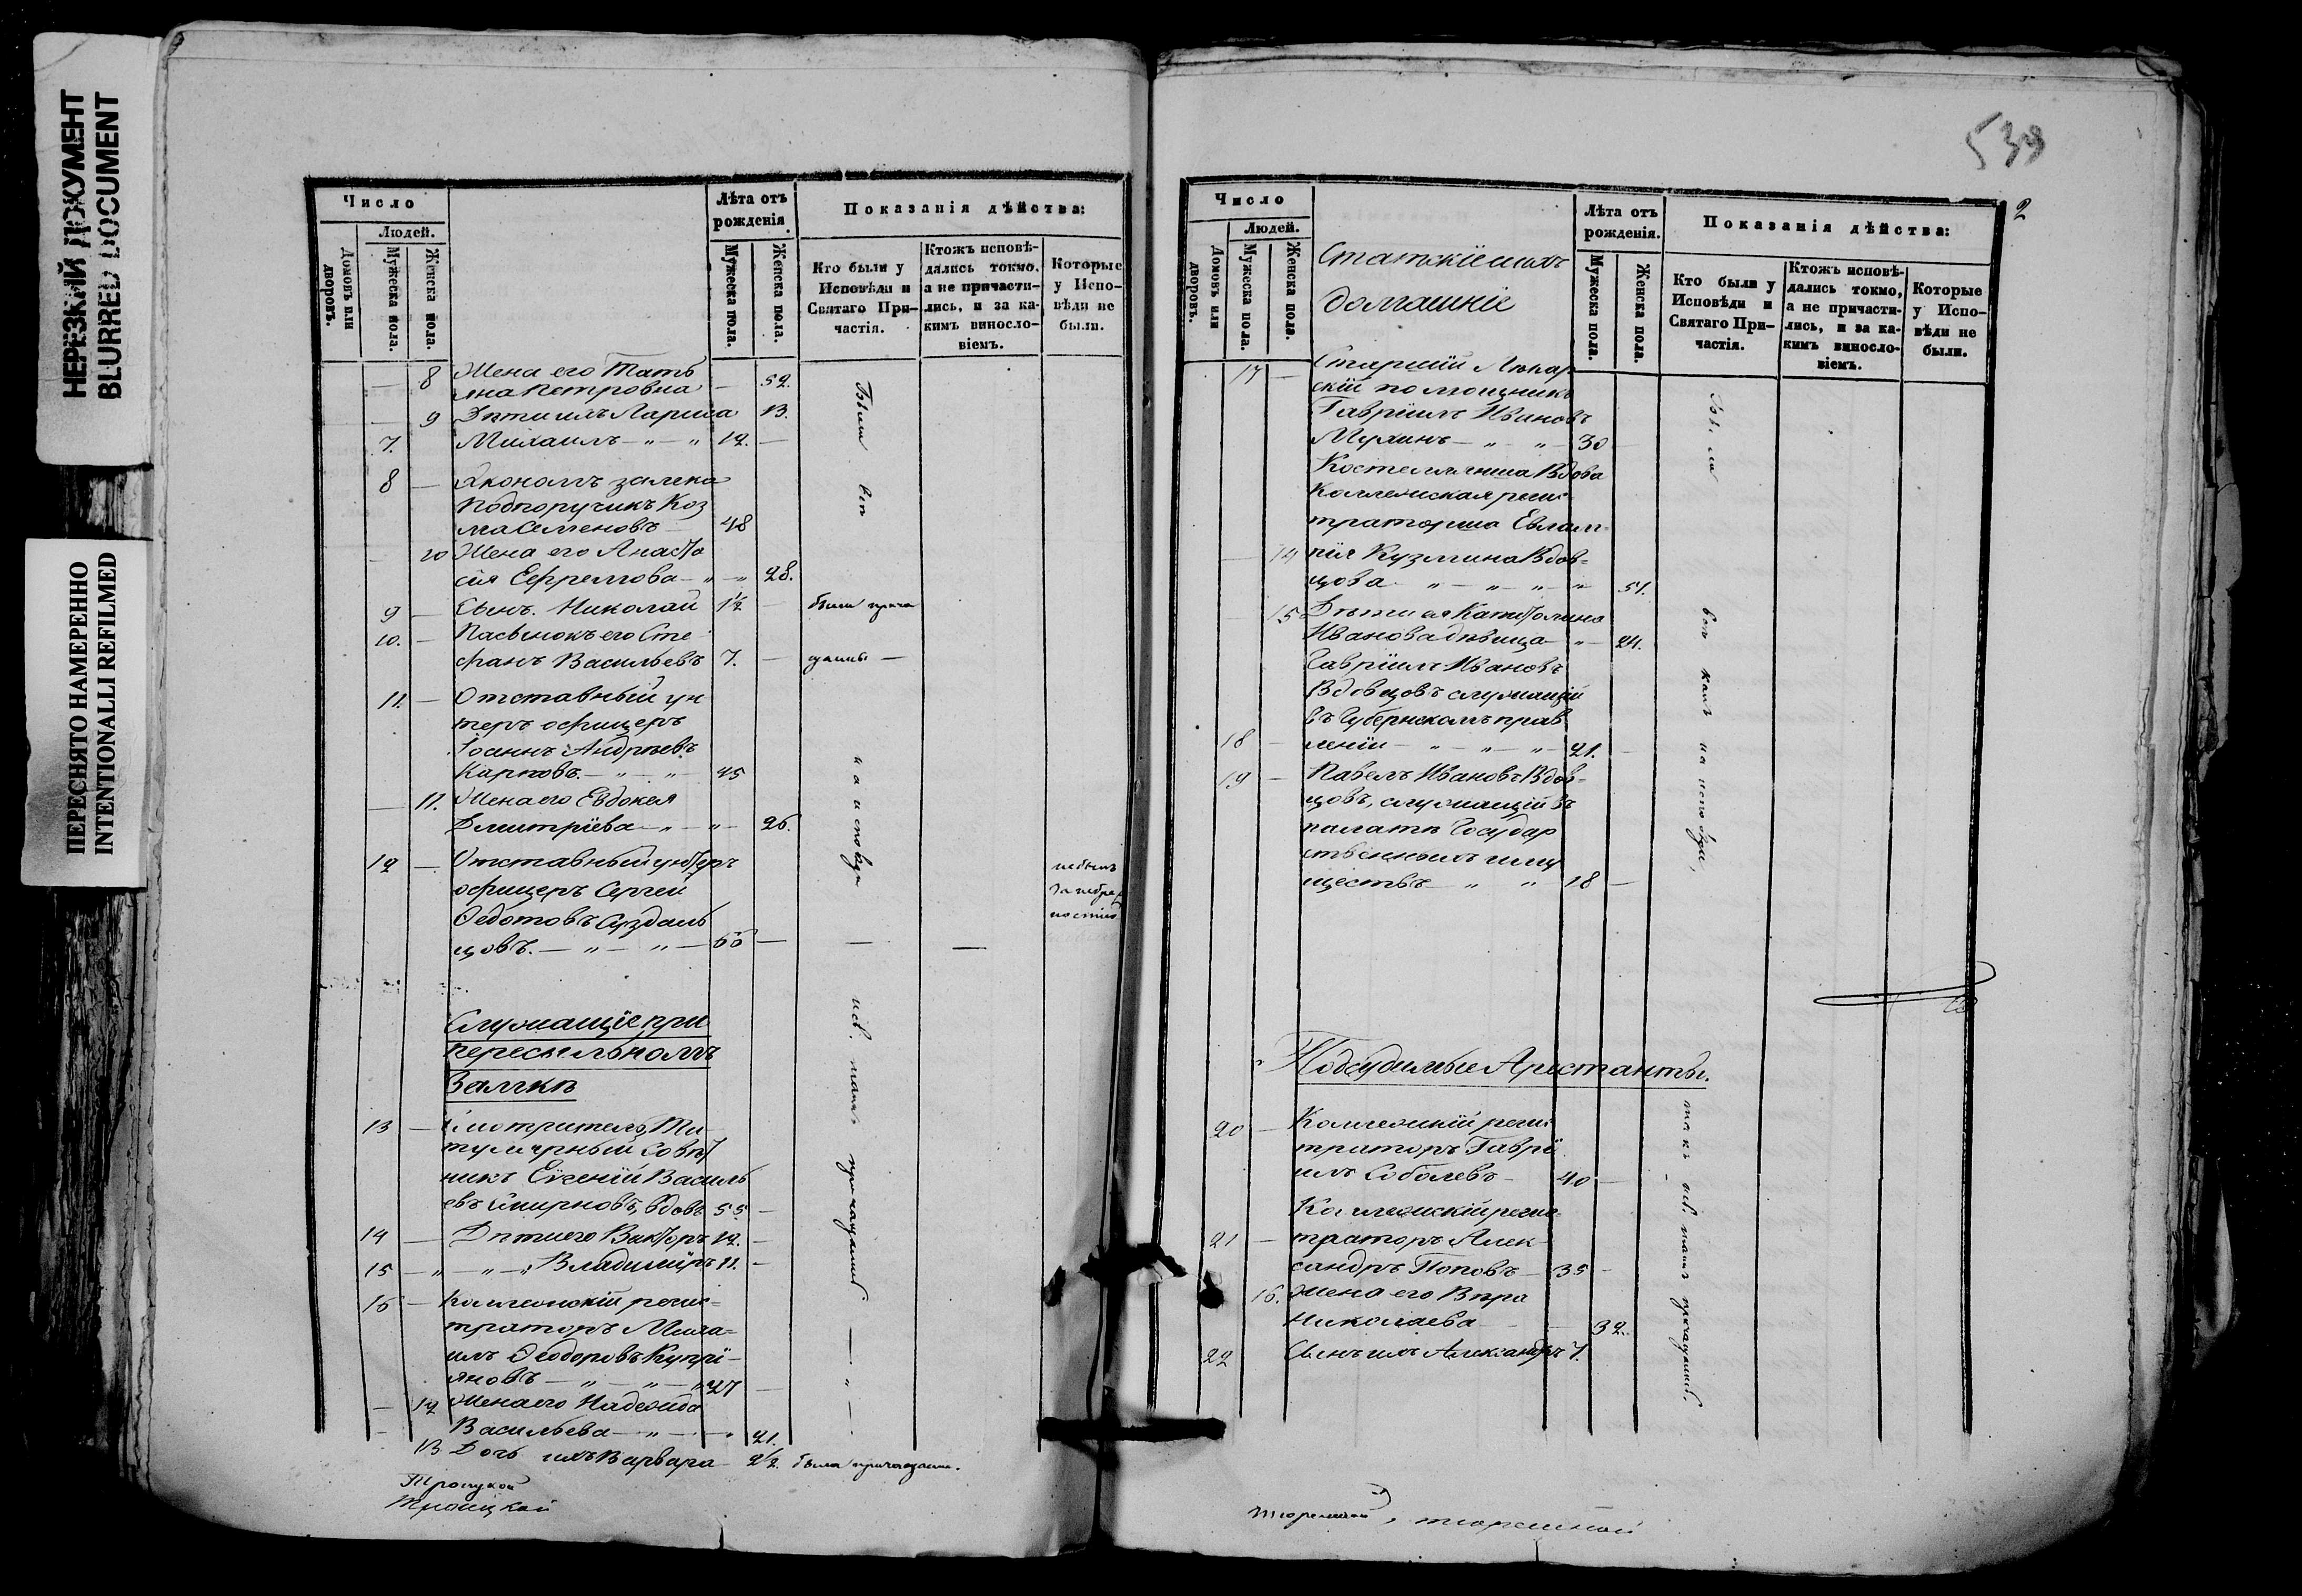 НЕРЕЗКИЙ ДОКУМЕНТ
BLURRED DOCUMENT
ПЕРЕСНЯТО НАМЕРЕННО
INTENTIONALLI REFILMED
Число
Людей.
Домовъ или дворовъ.
Мужеска пола.
Женска пола.
Лѣта отъ рожденія.
Мужеска пола.
Женска пола.
Показанія дѣйства:
Кто были у Исповѣди и Святаго Причастія.
Ктожъ исповѣдались токмо, а не причастились, и за какимъ винословіемъ.
Которые у Исповѣди не были.
— 8 Жена его Тать
яна Петровна — 52.
— 9 Дѣти ихъ Лариса 13.
7. Михаилъ — „ — „ 12. —
8 — Экономъ замка
Подпоручикъ Коз
ма Семеновъ 48
— 10 Жена его Анаста
сія Ефремова — „ — „ 28.
9 — Сынъ Николай 1½ — были прича
10. — Пасынокъ его Сте
фанъ Васильевъ 7. — щены —
11. — Отставный ун
теръ офицеръ
Іоаннъ Андреевъ
Карповъ. — „ — „ — 45
— 11. Жена его Евдокея
Дмитріева — „ — „ — 26.
12 — Отставный унтеръ
офицеръ Сергей
Федотовъ Суздаль
цовъ. — „ — „ — 66 — — —
не былъ
за небреж
ностію
Были всѣ на исповѣди
Служащіе при
пересыльномъ
Замкѣ
13 — Смотритель Ти
тулярный Совѣт
никъ Евгеній Василь
евъ Смирновъ, вдовъ 55 —
14 — Дѣти его Викторъ 12. —
15 — „ — „ — „ Владиміръ 11. —
16 — Коллежскій регис-
траторъ Миха-
илъ Феодоровъ Купрі-
яновъ — „ — „ — „ 27 —
— 12 Жена его Надежда
Васильева — „ — „ 21.
13 Дочь ихъ Варвара 2½. была причащена.
Троицкой
Троицкой
539
2
Число
Людей.
Домовъ или дворовъ.
Мужеска пола.
Женска пола.
Статскіе и ихъ
домашніе
Лѣта отъ рожденія.
Мужеска пола.
Женска пола.
Показанія дѣйства:
Кто были у Исповѣди и Святаго Причастія.
Ктожъ исповѣдались токмо, а не причастились, и за какимъ винословіемъ.
Которые у Исповѣди не были.
17 — Старшій Лекар
скій помощникъ
Гавріилъ Ивановъ
Мухинъ — „ — „ — 30 —
Костелянша Вдова
Коллежская регис
траторша Евлам-
— 14 пія Кузмина Вдов-
цова „ — „ — „ — „ 51.
15 Дѣти ея Капитолина
Иванова дѣвица — „ — 24.
Гавріилъ Ивановъ
Вдовцовъ служащій
въ Губернскомъ прав
18 — леніи — „ — „ — „ — 21. —
19 — Павелъ Ивановъ Вдов-
цовъ, служащій въ
палатѣ Государ
ственныхъ иму
ществъ — „ „ — 18 —
Подсудимые Арестанты.
20 — Коллежскій регис
траторъ Гаврі
илъ Соболевъ — 40 —
Коллежскій регис-
21 — траторъ Алек
сандръ Поповъ — 35 —
16. Жена его Вѣра
Николаева — 32.
22 Сынъ ихъ Александръ 7.
тюремной, тюремной